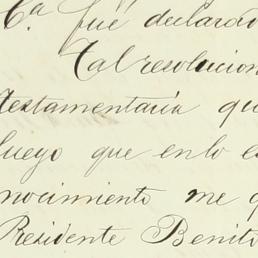 Cª fué declarado
Tal resolucion
testamentaria qu
luego que en lo e
nocimiento me q
Residente Benito